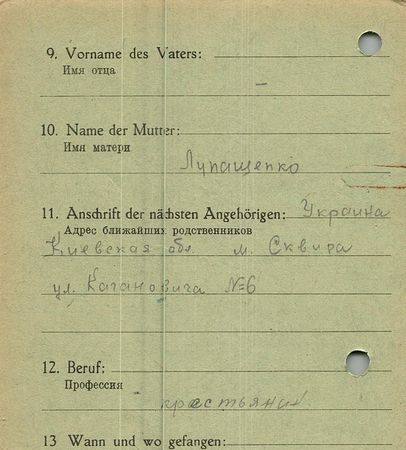 9. Vorname des Vaters:
Имя отца
–
10. Name der Mutter:
Имя матери
Лупащенко
11. Anschrift der nächsten Angehörigen: Украина
Адрес ближайших родственников
Киевская обл. м. Сквира
ул. Кагановича №6
12. Beruf:
Профессия
крестьянин
13 Wann und wo gefangen: